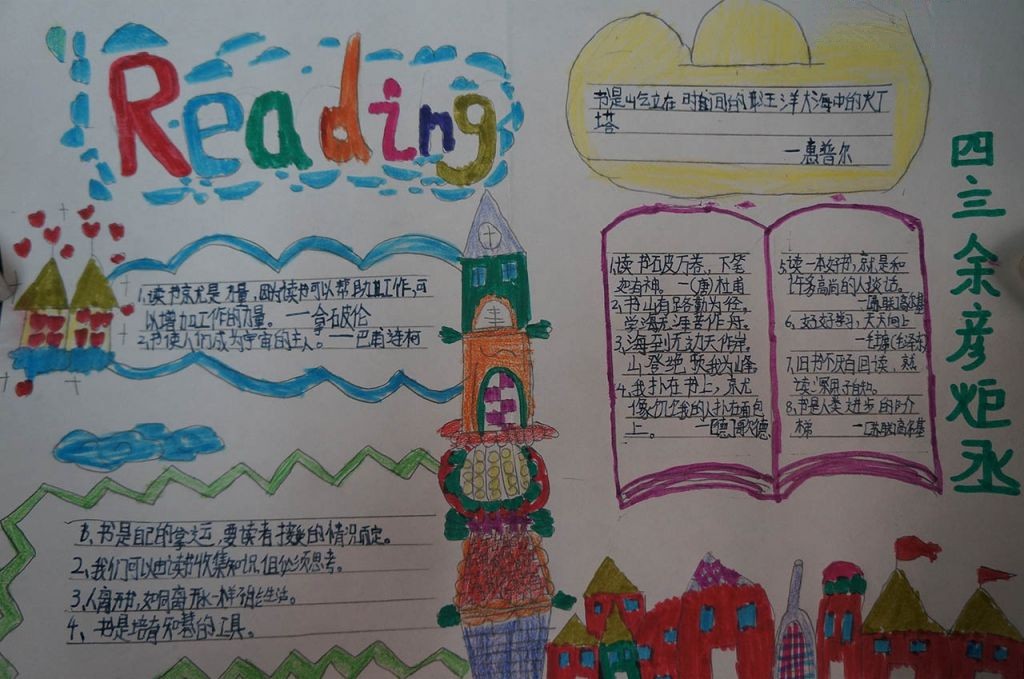 Reading
书是屹立在时间的汪洋大海中的灯
塔
—惠普尔
四三余彦炬丞
1、读书就是力量,因为读书可以帮助其工作,可
以增加工作的力量。——拿破伦
2、书使人们成为宇宙的主人。——巴甫连柯
1、读书破万卷,下笔
如有神。—(唐)杜甫
2、书山有路勤为径,
学海无涯苦作舟。
3、海到无边天作岸,
山登绝顶我为峰
4、我扑在书上,就
像饥饿的人扑在面包
上。
5、读一本好书,就是和
许多高尚的人谈话。
6、好好学习,天天向上
—毛主席(毛泽东)
7、旧书不厌百回读,熟
读深思子自知。
8、书是人类进步的阶
梯 —[苏联]高尔基
书是自己的命运,要读者接受的情况而定。
2、我们可以由读书收集知识,但必须思考。
3、人离开书,如同离开水一样不能生活。
4、书是培育知慧的工具。